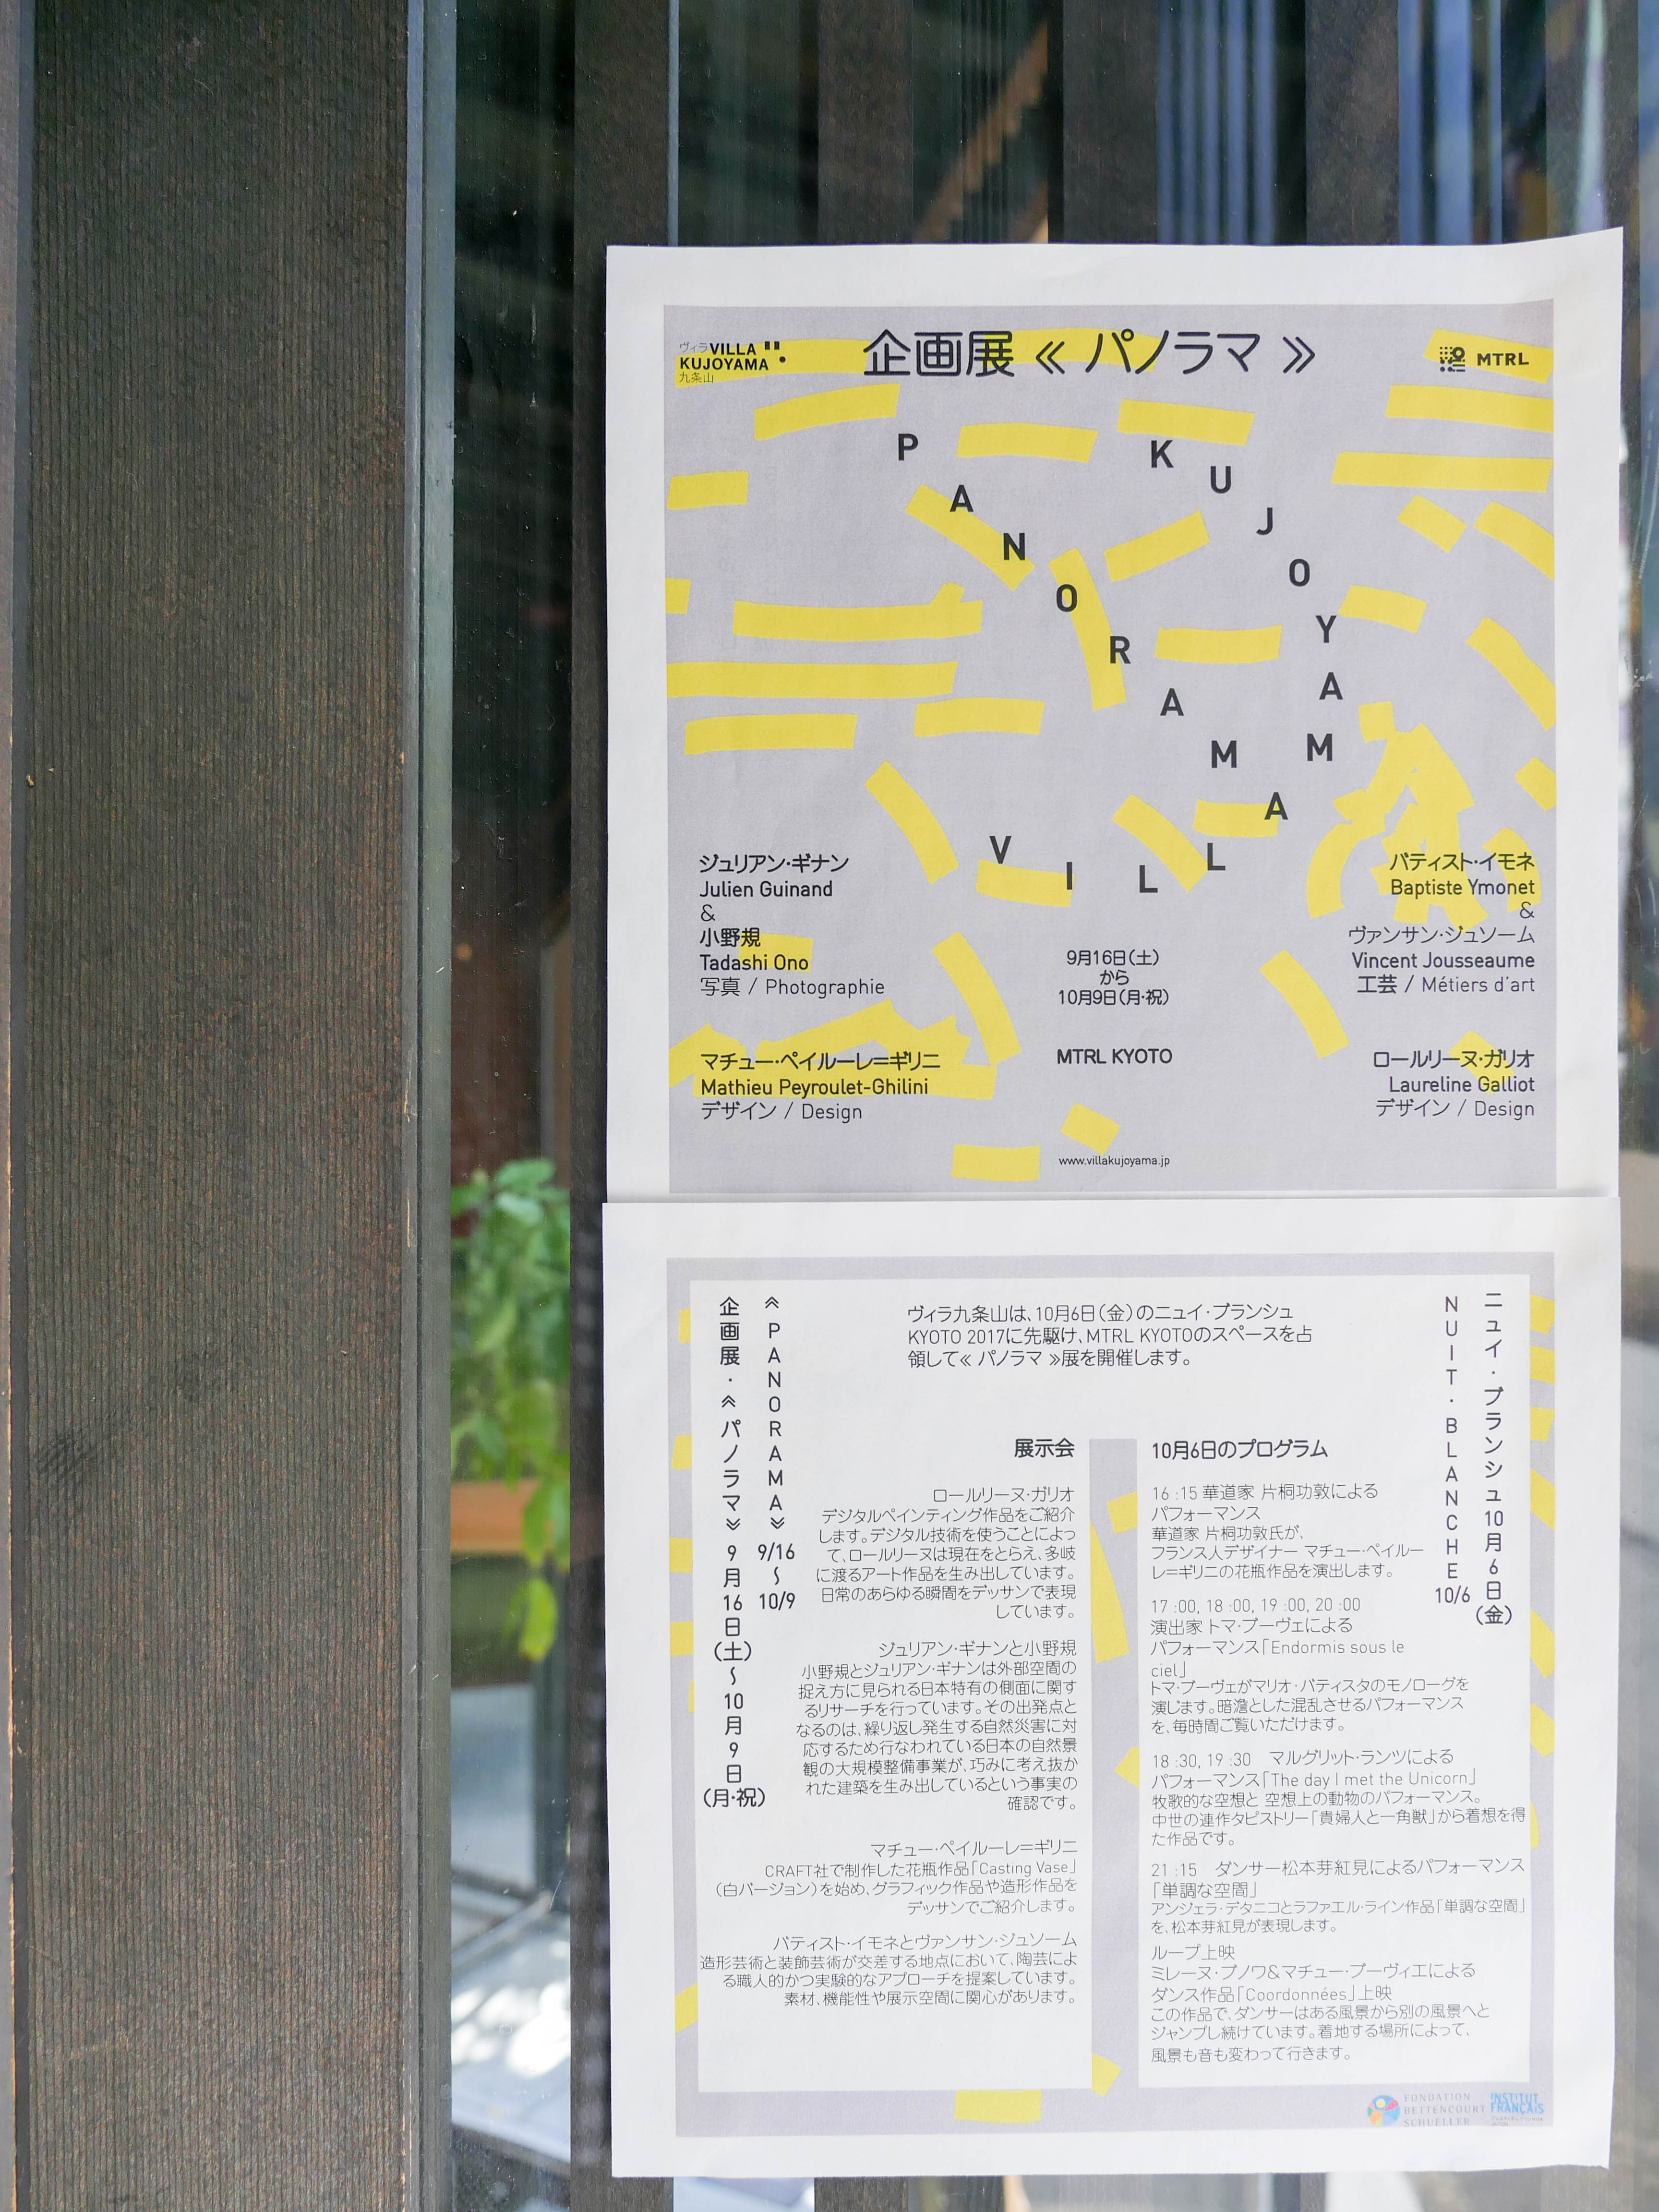 ヴィラVILLA
KUJOYAMA
九条山
企画展 ≪ パノラマ ≫
MTRL
PANORAMA
KUJOYAMA
VILLA
ジュリアン・ギナン
Julien Guinand
&
小野規
Tadashi Ono
写真 / Photographie
マチュー・ペイルーレ=ギリニ
Mathieu Peyroulet-Ghilini
デザイン / Design
9月16日(土)
から
10月9日(月・祝)
MTRL KYOTO
www.villakujoyama.jp
バティスト・イモネ
Baptiste Ymonet
&
ヴァンサン・ジュソーム
Vincent Jousseaume
工芸 / Métiers d'art
ロールリーヌ・ガリオ
Laureline Galliot
デザイン / Design
企画展・≪パノラマ≫ 9月16日(土)〜10月9日(月・祝)
≪PANORAMA≫ 9/16〜10/9
ヴィラ九条山は、10月6日(金)のニュイ・ブランシュ
KYOTO 2017に先駆け、MTRL KYOTOのスペースを占
領して≪ パノラマ ≫展を開催します。
ニュイ・ブランシュ10月6日(金)
NUIT・BLANCHE 10/6
展示会
ロールリーヌ・ガリオ
デジタルペインティング作品をご紹介
します。デジタル技術を使うことによっ
て、ロールリーヌは現在をとらえ、多岐
に渡るアート作品を生み出しています。
日常のあらゆる瞬間をデッサンで表現
しています。
ジュリアン・ギナンと小野規
小野規とジュリアン・ギナンは外部空間の
捉え方に見られる日本特有の側面に関す
るリサーチを行っています。その出発点と
なるのは、繰り返し発生する自然災害に対
応するため行なわれている日本の自然景
観の大規模整備事業が、巧みに考え抜か
れた建築を生み出しているという事実の
確認です。
マチュー・ペイルーレ=ギリニ
CRAFT社で制作した花瓶作品「Casting Vase」
(白バージョン)を始め、グラフィック作品や造形作品を
デッサンでご紹介します。
バティスト・イモネとヴァンサン・ジュソーム
造形芸術と装飾芸術が交差する地点において、陶芸によ
る職人的かつ実験的なアプローチを提案しています。
素材、機能性や展示空間に関心があります。
10月6日のプログラム
16 :15 華道家 片桐功敦による
パフォーマンス
華道家 片桐功敦氏が、
フランス人デザイナー マチュー・ペイルー
レ=ギリニの花瓶作品を演出します。
17 :00, 18 :00, 19 :00, 20 :00
演出家 トマ・ブーヴェによる
パフォーマンス「Endormis sous le
ciel」
トマ・ブーヴェがマリオ・バティスタのモノローグを
演じます。暗澹とした混乱させるパフォーマンス
を、毎時間ご覧いただけます。
18 :30, 19 :30　マルグリット・ランツによる
パフォーマンス「The day I met the Unicorn」
牧歌的な空想と 空想上の動物のパフォーマンス。
中世の連作タピストリー「貴婦人と一角獣」から着想を得
た作品です。
21 :15　ダンサー松本芽紅見によるパフォーマンス
「単調な空間」
アンジェラ・デタニコとラファエル・ライン作品「単調な空間」
を、松本芽紅見が表現します。
ループ上映
ミレーヌ・ブノワ&マチュー・ブーヴィエによる
ダンス作品「Coordonnées」上映
この作品で、ダンサーはある風景から別の風景へと
ジャンプし続けています。着地する場所によって、
風景も音も変わって行きます。
FONDATION
BETTENCOURT
SCHUELLER
INSTITUT
FRANÇAIS